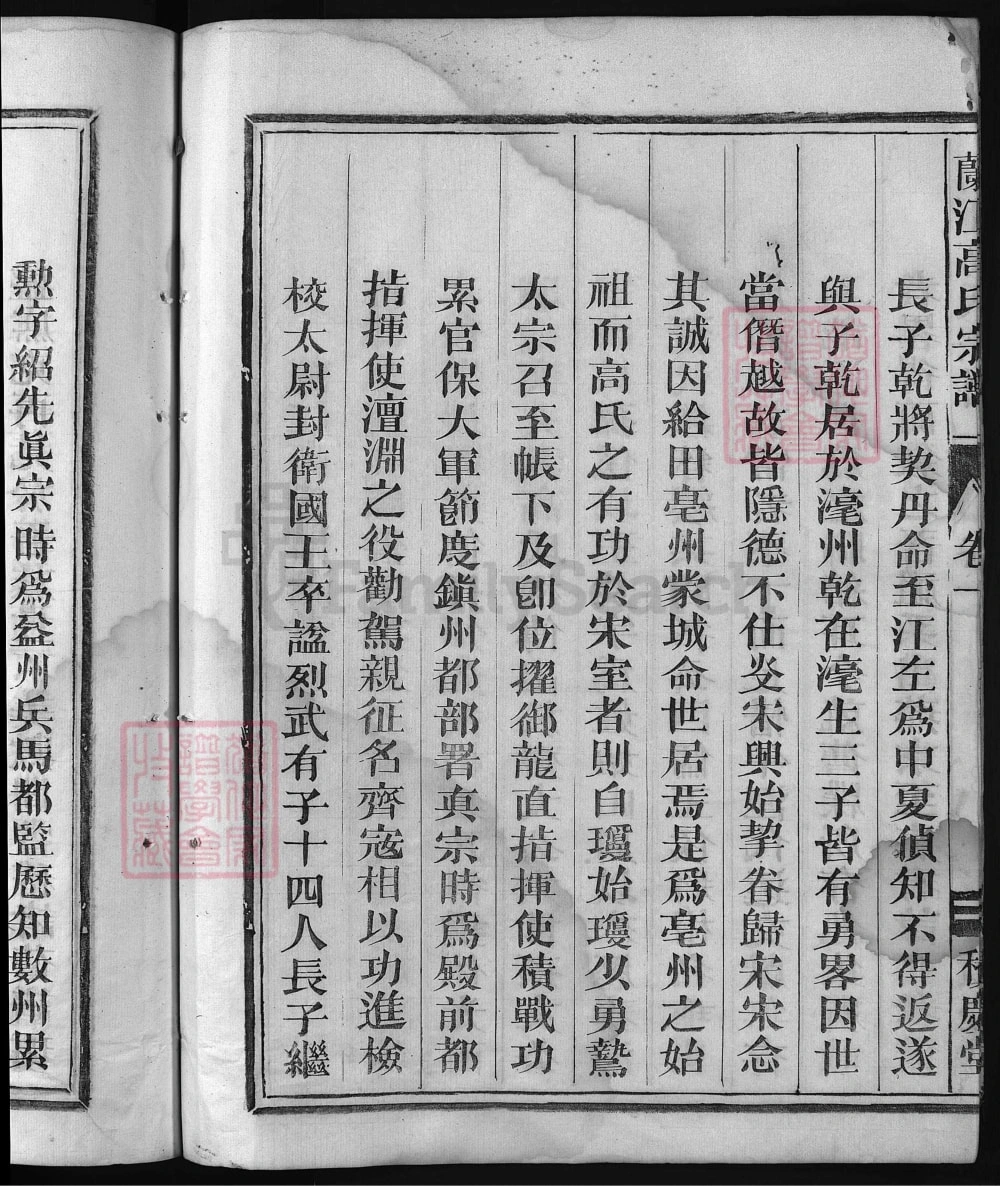 蘭江高氏宗譜
卷一
積慶堂
長子乾將契丹命至江左爲中夏偵知不得返遂
與子乾居於濠州乾在濠生三子皆有勇畧因世
當僭越故皆隱德不仕炎宋興始挈眷歸宋宋念
其誠因給田亳州蒙城命世居焉是爲亳州之始
祖而高氏之有功於宋室者則自瓊始瓊少勇鷙
太宗召至帳下及卽位擢御龍直指揮使積戰功
累官保大軍節度鎮州都部署真宗時爲殿前都
指揮使澶淵之役勸駕親征名齊寇相以功進檢
校太尉封衛國王卒諡烈武有子十四人長子繼
勲字紹先眞宗時爲益州兵馬都監歷知數州累
FamilySearch